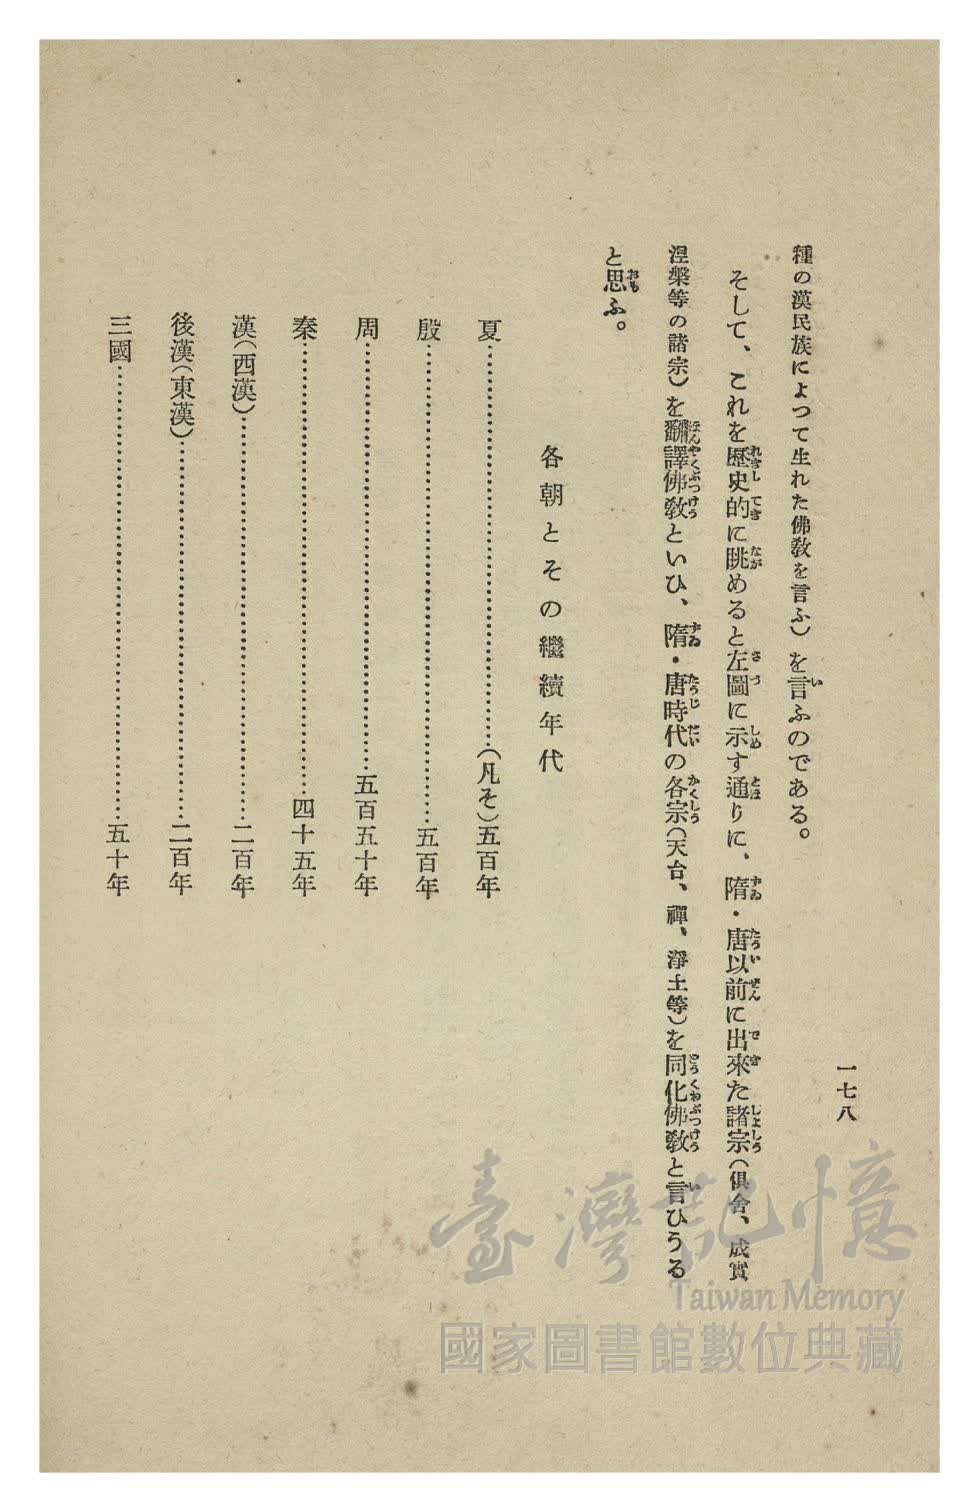 一七八
種の漢民族によつて生れた佛敎を言ふ)を言ふのである。
そして、これを歷史的に眺めると左圖に示す通りに、隋・唐以前に出來た諸宗(俱舍、成實
涅槃等の諸宗)を翻譯佛敎といひ、隋・唐時代の各宗(天台、禪、淨土等)を同化佛敎と言ひうる
と思ふ。
各朝とその繼續年代
夏……………………………(凡そ)五百年
殷……………………………五百年
周……………………………五百五十年
秦……………………………四十五年
漢(西漢)……………………………二百年
後漢(東漢)……………………………二百年
三國……………………………五十年
臺灣記憶
Taiwan Memory
國家圖書館數位典藏